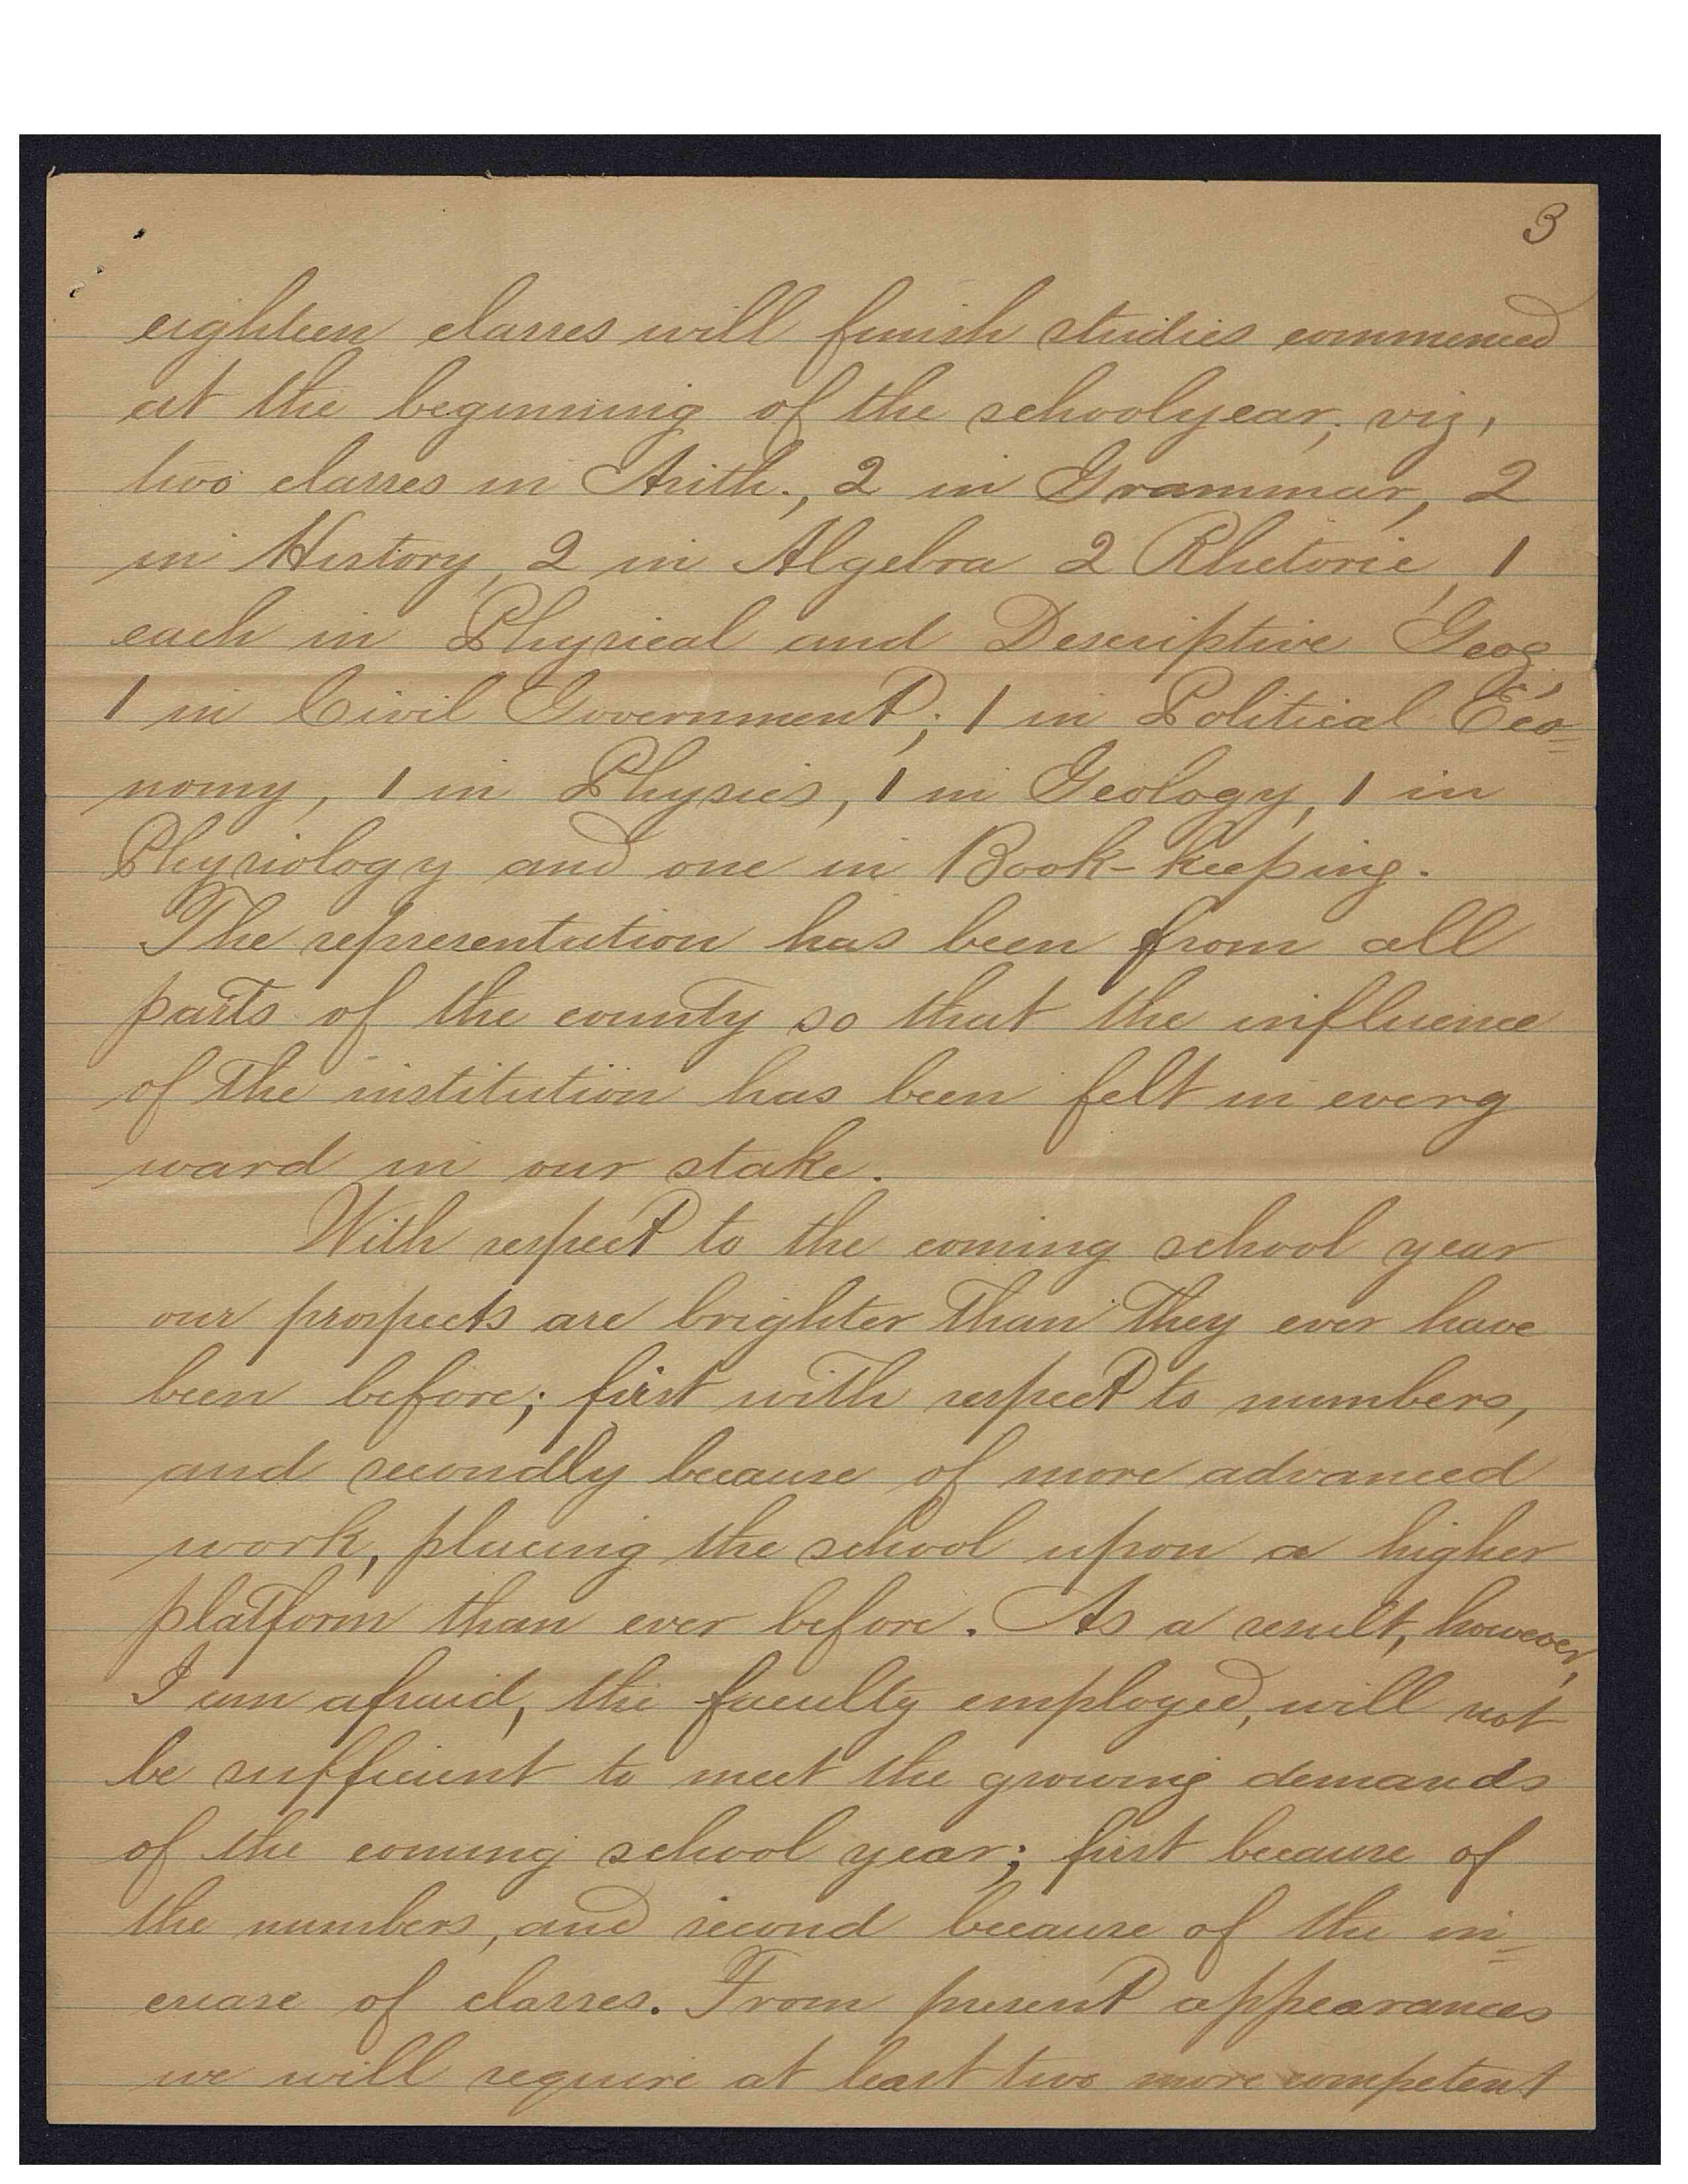 3
eighteen classes will finish studies commenced
at the beginning of the schoolyear; viz,
two classes in Arith., 2 in Grammar, 2
in History, 2 in Algebra 2 Rhetoric, 1
each in Physical and Descriptive Geog.,
1 in Civil Government; 1 in Political Eco=
nomy, 1 in Physics, 1 in Geology, 1 in
Physiology and one in Book-keeping.
The representation has been from all
parts of the county so that the influence
of the institution has been felt in every
ward in our stake.
With respect to the coming school year
our prospects are brighter than they ever have
been before; first with respect to numbers,
and secondly because of more advanced
work, placing the school upon a higher
platform than ever before. As a result, however,
I am afraid, the faculty employed, will not
be sufficient to meet the growing demands
of the coming school year; first because of
the numbers, and second because of the in=
crease of classes. From present appearances
we will require at least two more competent